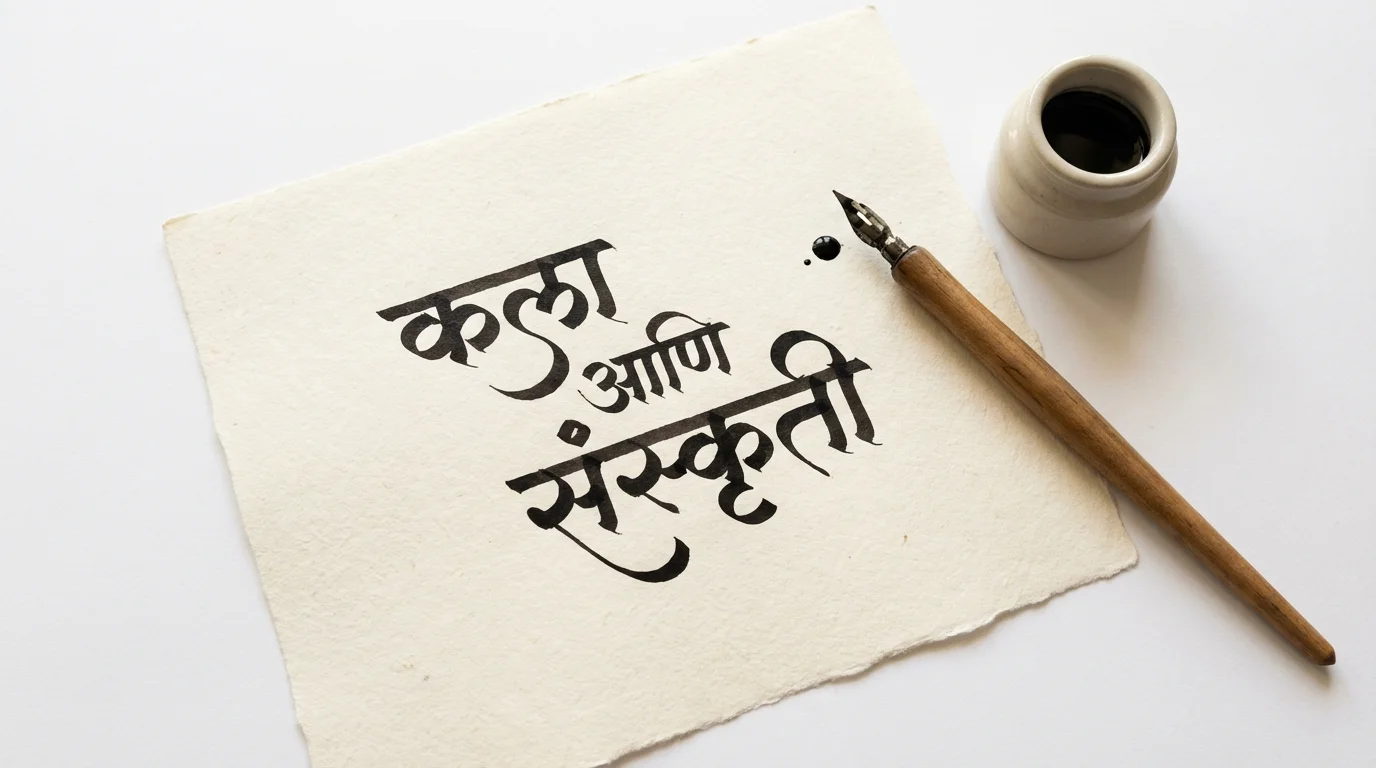 कला
आणि
संस्कृती